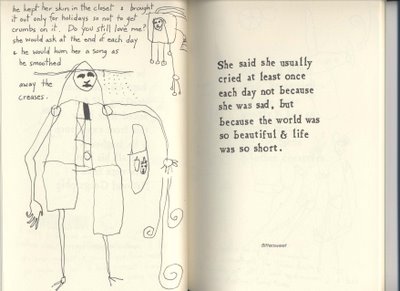 he kept her skin in the closet & brought
it out only for holidays so not to get
crumbs on it. Do you still love me?
she would ask at the end of each day
& he would hum her a song as
he smoothed
away the
creases.
She said she usually
cried at least once
each day not because
she was sad, but
because the world was
so beautiful & life
was so short.
Bittersweet